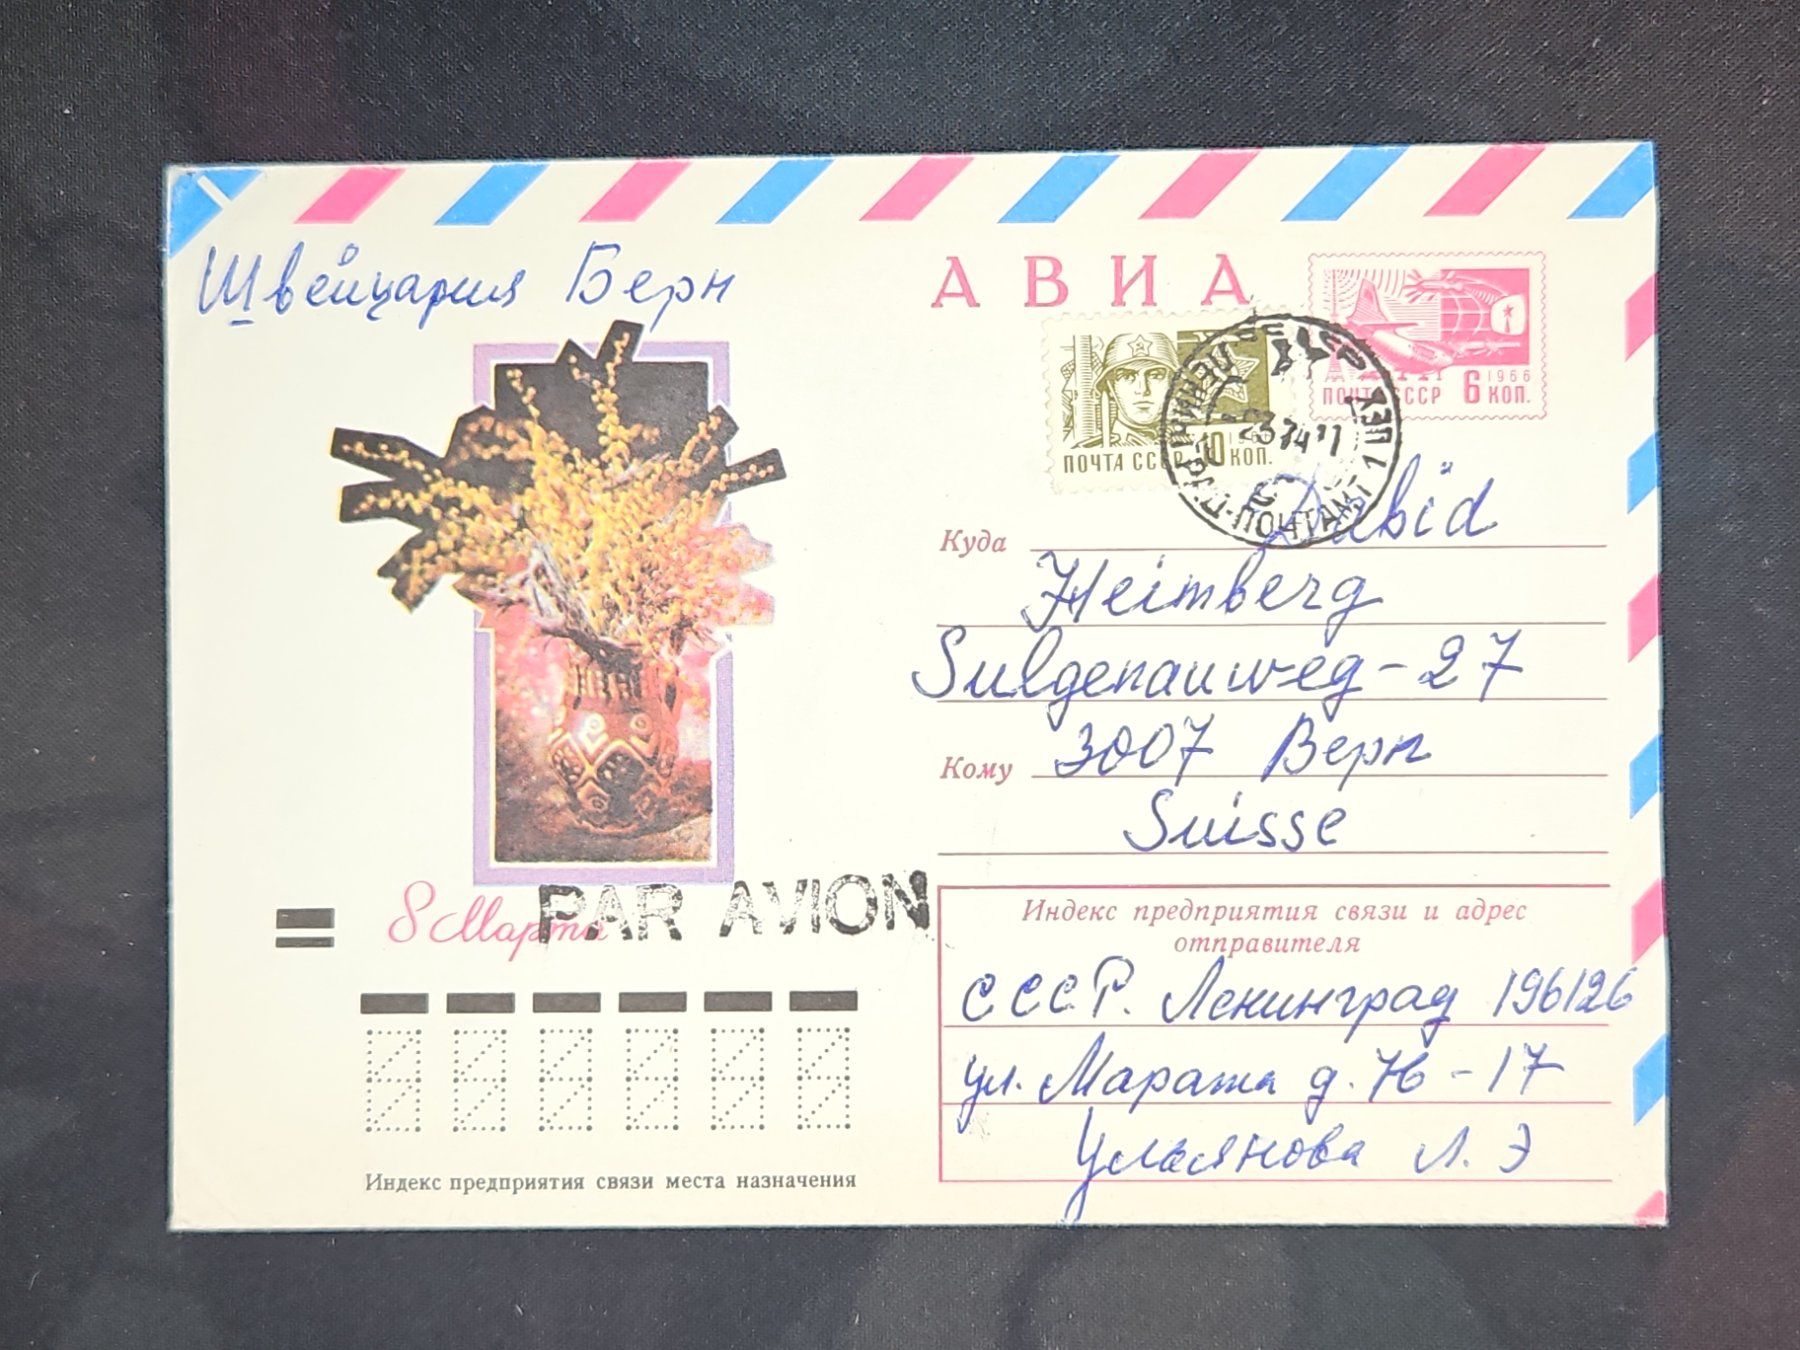 Швейцария Берн
АВИА
ПОЧТА СССР 6 1966 КОП.
ПОЧТА СССР 10 196 КОП.
ЛЕНИНГРАД-ПОЧТАМТ 1 ЦЕХ
23 74 11
Куда
Heimberg
Sulgenauweg-27
Кому 3007 Верн
Suisse
8 Марта
PAR AVION
Индекс предприятия связи и адрес
отправителя
СССР. Ленинград 196126
ул. Марата д. 76-17
Ульянова Л. Э
Индекс предприятия связи места назначения